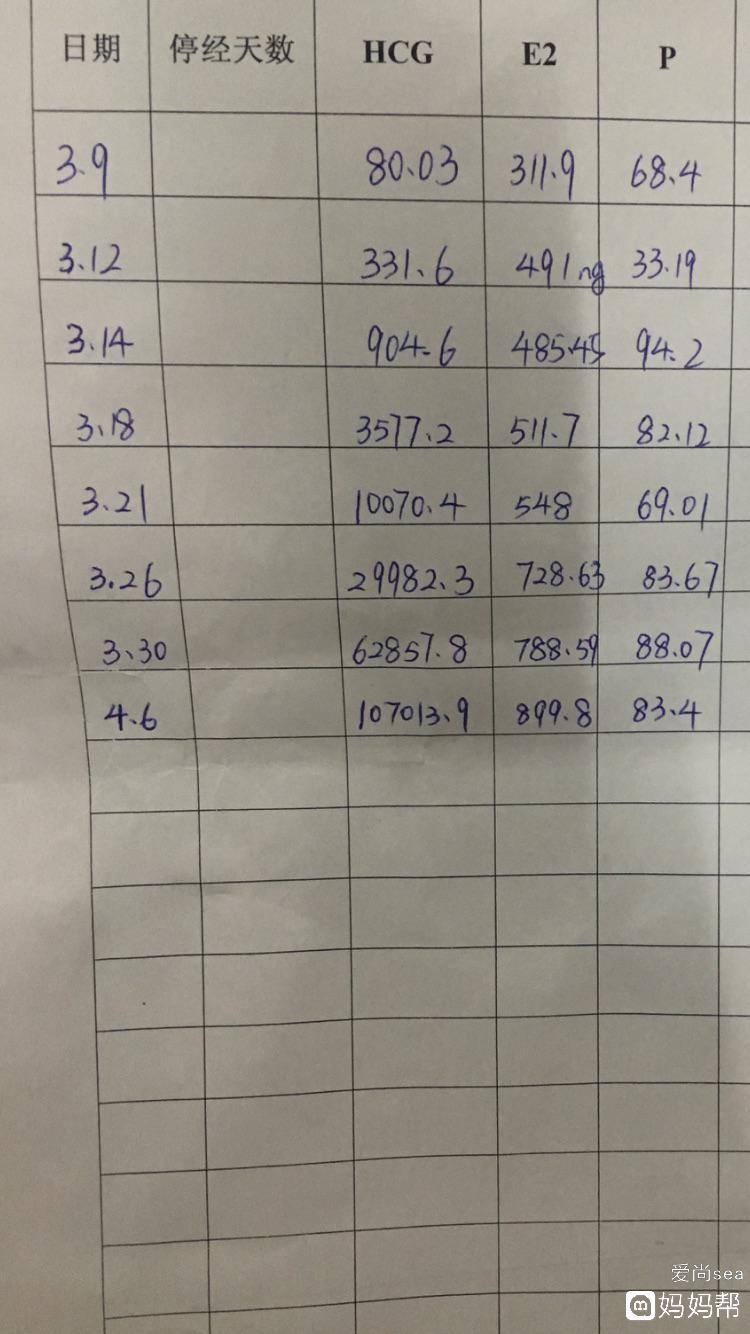 日期 停经天数 HCG E2 P
3.9 80.03 311.9 68.4
3.12 331.6 491ng 33.19
3.14 904.6 485.45 94.2
3.18 3577.2 511.7 82.12
3.21 10070.4 548 69.01
3.26 29982.3 728.63 83.67
3.30 62857.8 788.59 88.07
4.6 107013.9 899.8 83.4
爱尚sea
妈妈帮